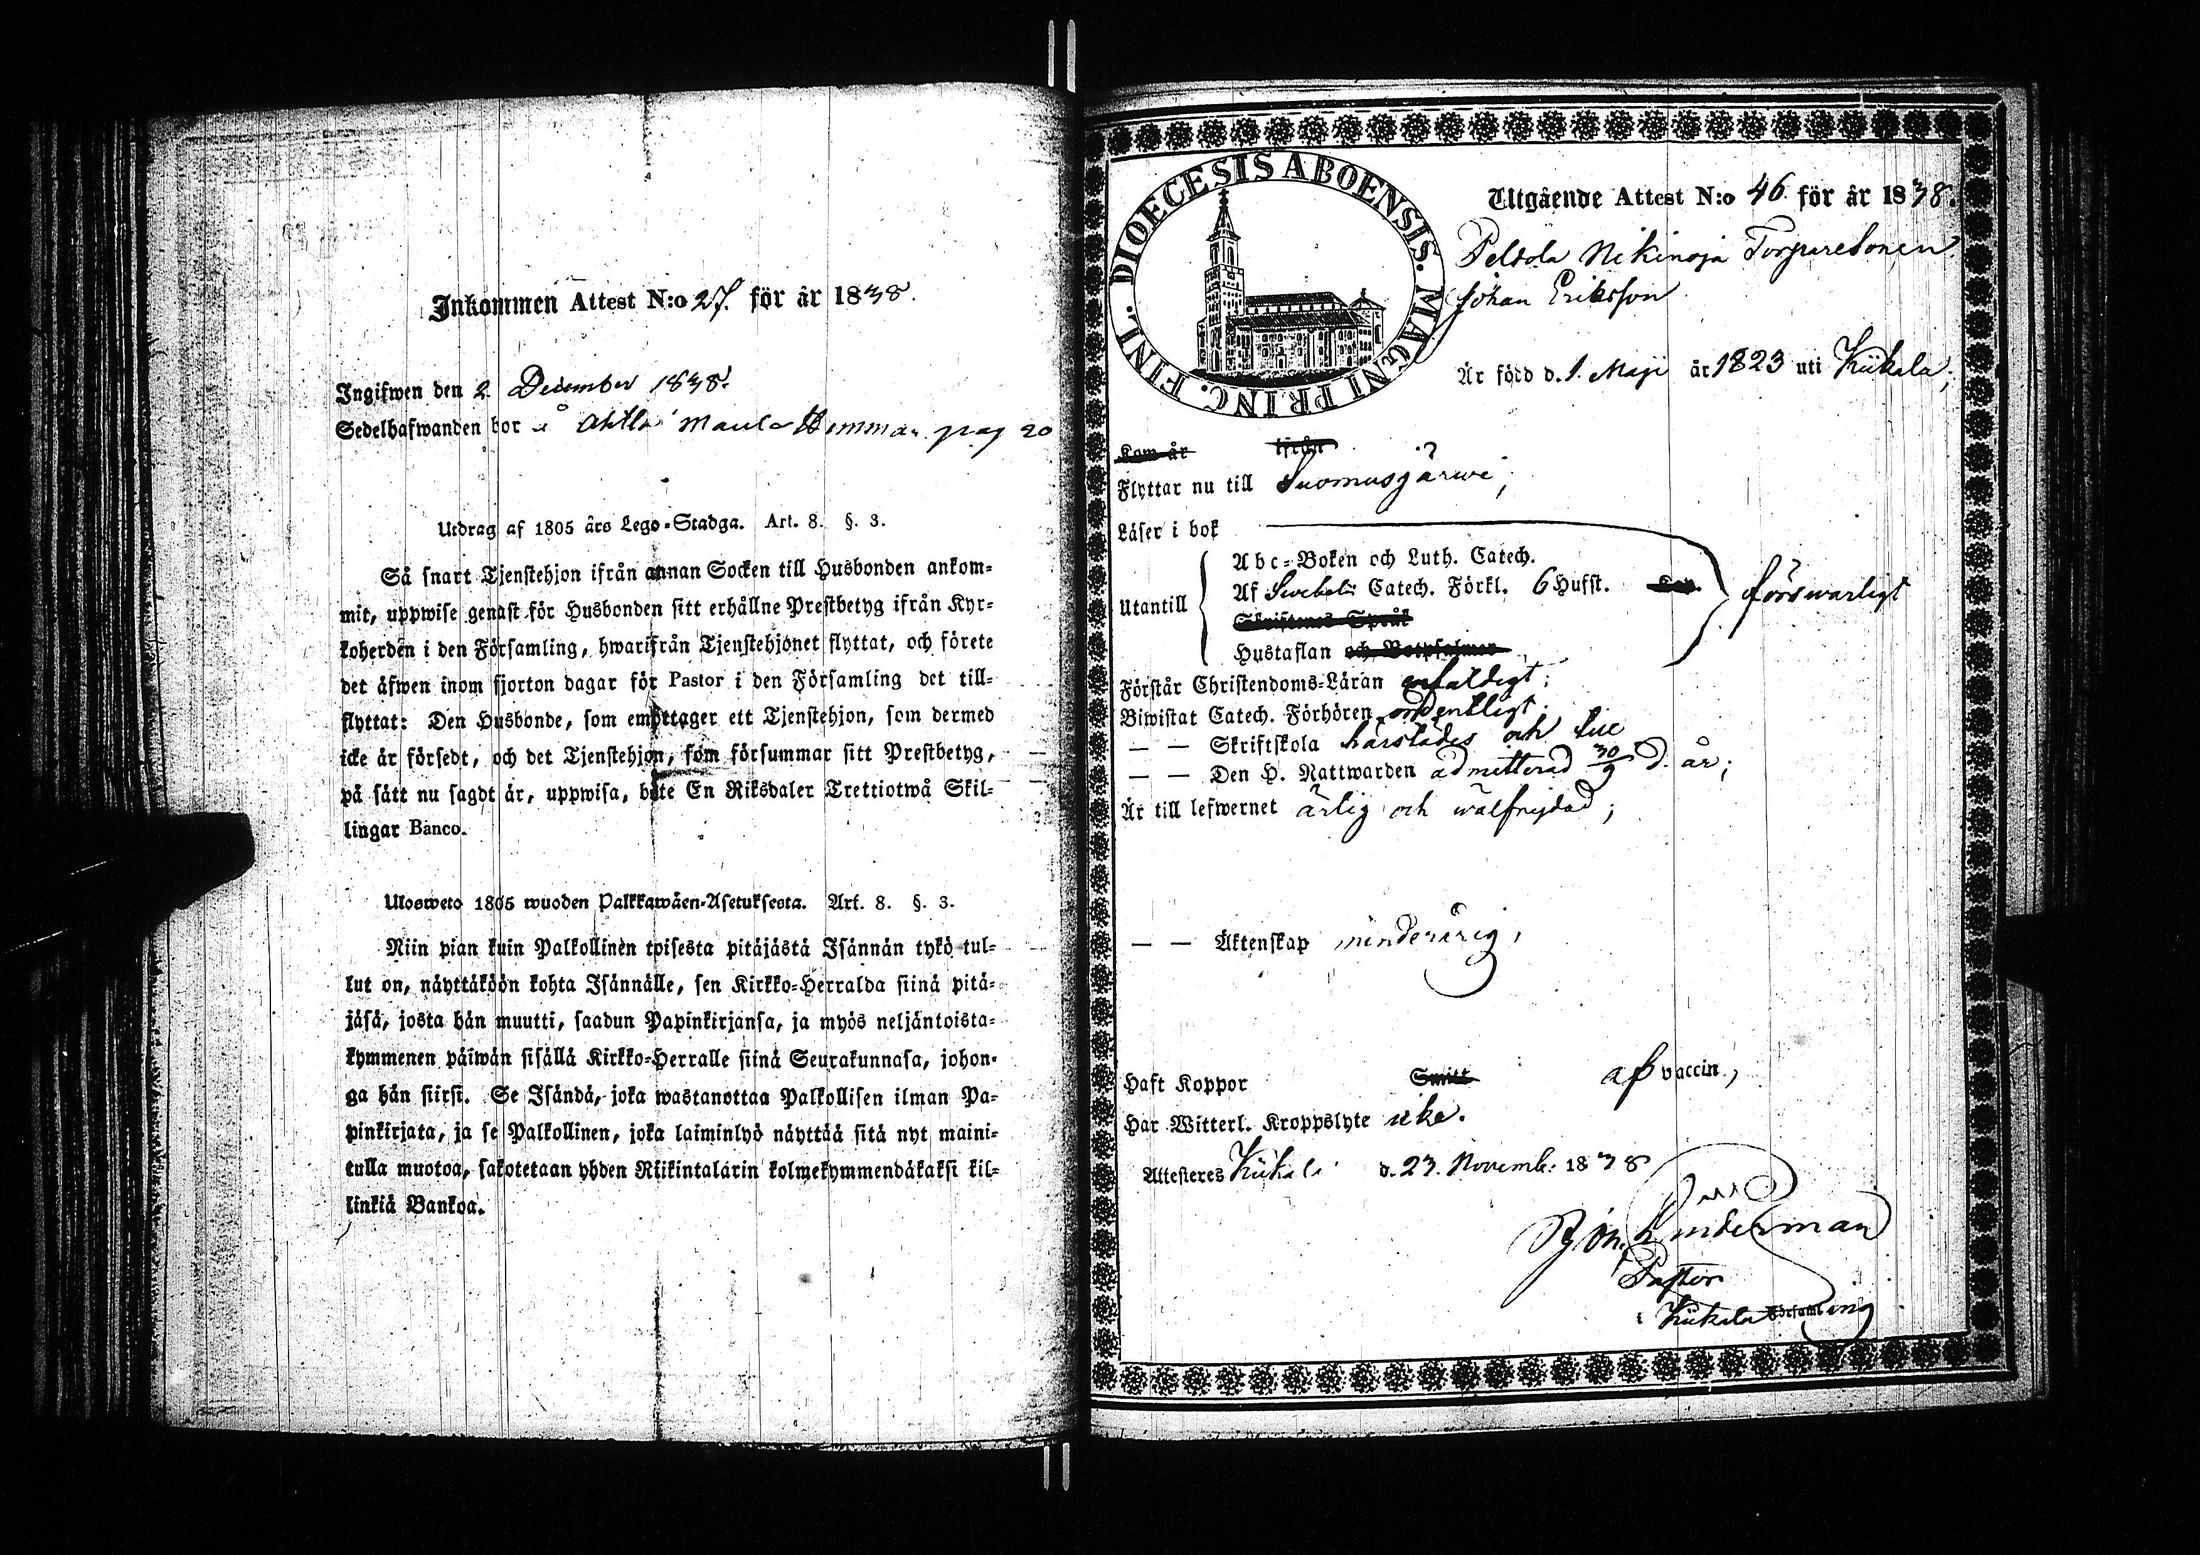 Inkommen Attest N:o 27. för år 1838.
Ingifwen den 2 December 1838.
Sedelhafwanden bor å Ahtla Maula Hemman pag 20
Utdrag af 1805 års Lego-Stadga. Art. 8. §. 3.
Så snart Tjenstehjon ifrån annan Socken till Husbonden ankom-
mit, uppwise genast för Husbonden sitt erhållne Prestbetyg ifrån Kyr-
koherden i den Församling, hwarifrån Tjenstehjonet flyttat, och förete
det äfwen inom fjorton dagar för Pastor i den Församling det till-
flyttat: Den Husbonde, som emottager ett Tjenstehjon, som dermed
icke är försedt, och det Tjenstehjon, som försummar sitt Prestbetyg,
på sätt nu sagdt är, uppwisa, böte En Riksdaler Trettiotwå Skil-
lingar Banco.
Ulosweto 1805 wuoden Palkkawäen-Asetuksesta. Art. 8. §. 3.
Niin pian kuin Palkollinen toisesta pitäjästä Isännän tykö tul-
lut on, näyttäköön kohta Isännälle, sen Kirkko-Herralda siinä pitä-
jäsä, josta hän muutti, saadun Papinkirjansa, ja myös neljäntoista-
kymmenen päiwän sisällä Kirkko-Herralle siinä Seurakunnasa, johon-
ga hän siirsi. Se Isändä, joka wastanottaa Palkollisen ilman Pa-
pinkirjata, ja se Palkollinen, joka laiminlyö näyttää sitä nyt maini-
tulla muotoa, sakotetaan yhden Riikintalarin kolmekymmendäkaksi kil-
linkiä Bankoa.
DIOECESIS ABOENSIS. MAGNI PRINC. FINL.
Utgående Attest N:o 46 för år 1838.
Peldola Nikinoja Torparesonen
Johan Eriksson
Är född d. 1. Maji år 1823 uti Kiikala;
Kom år ifrån
Flyttar nu till Suomusjärwi;
Läser i bok
Abc-Boken och Luth. Catech.
Utantill Af Swebeli Catech. Förkl. 6 Hufst. Kap. förswarligt
Skriftenes Språk
Hustaflan och Botpsalmer
Förstår Christendoms-Läran enfaldigt;
Biwistat Catech. Förhören ordentligt;
— — Skriftskola härstädes och
— — Den H. Nattwarden admitterad 30/9 d. år;
Är till lefwernet ärlig och wälfrejdad;
— — Äktenskap minderårig,
Haft Koppor Smitt af vaccin,
Har Witterl. Kroppslyte icke.
Attesteres Kiikala d. 23. Novemb: 1838
Linderman
Pastor
i Kiikala Församling